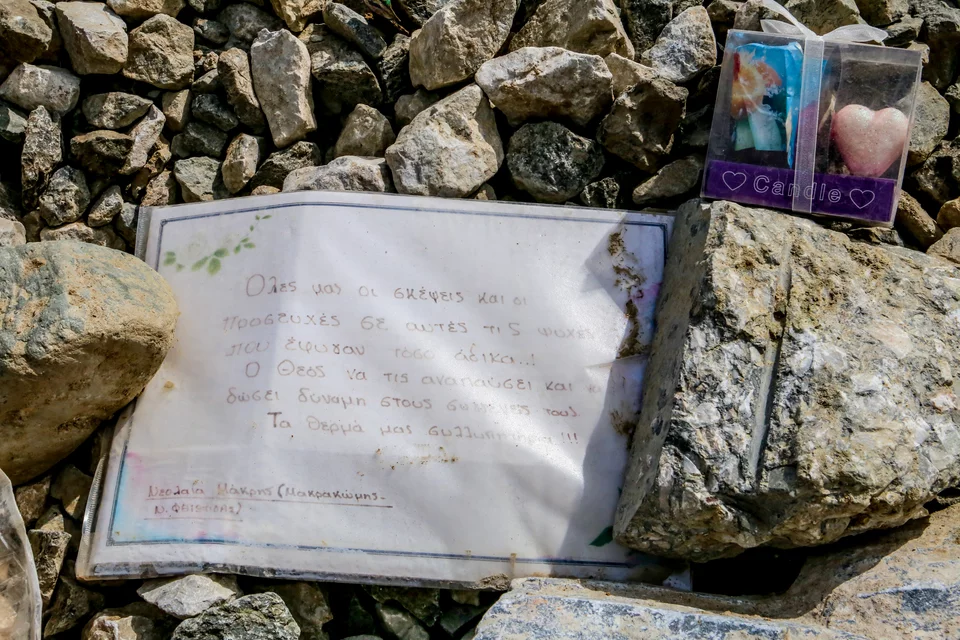 Όλες μας οι σκέψεις και οι
προσευχές σε αυτές τις ψυχές
που έφυγαν τόσο άδικα..!
Ο Θεός να τις αναπαύσει και
δώσει δύναμη στους συγγενείς τους
Τα θερμά μας συλλυπητήρια!!!
Νεολαία Μάκρης (Μακρακώμης-
Ν. Φθιώτιδας)
♡ Candle ♡